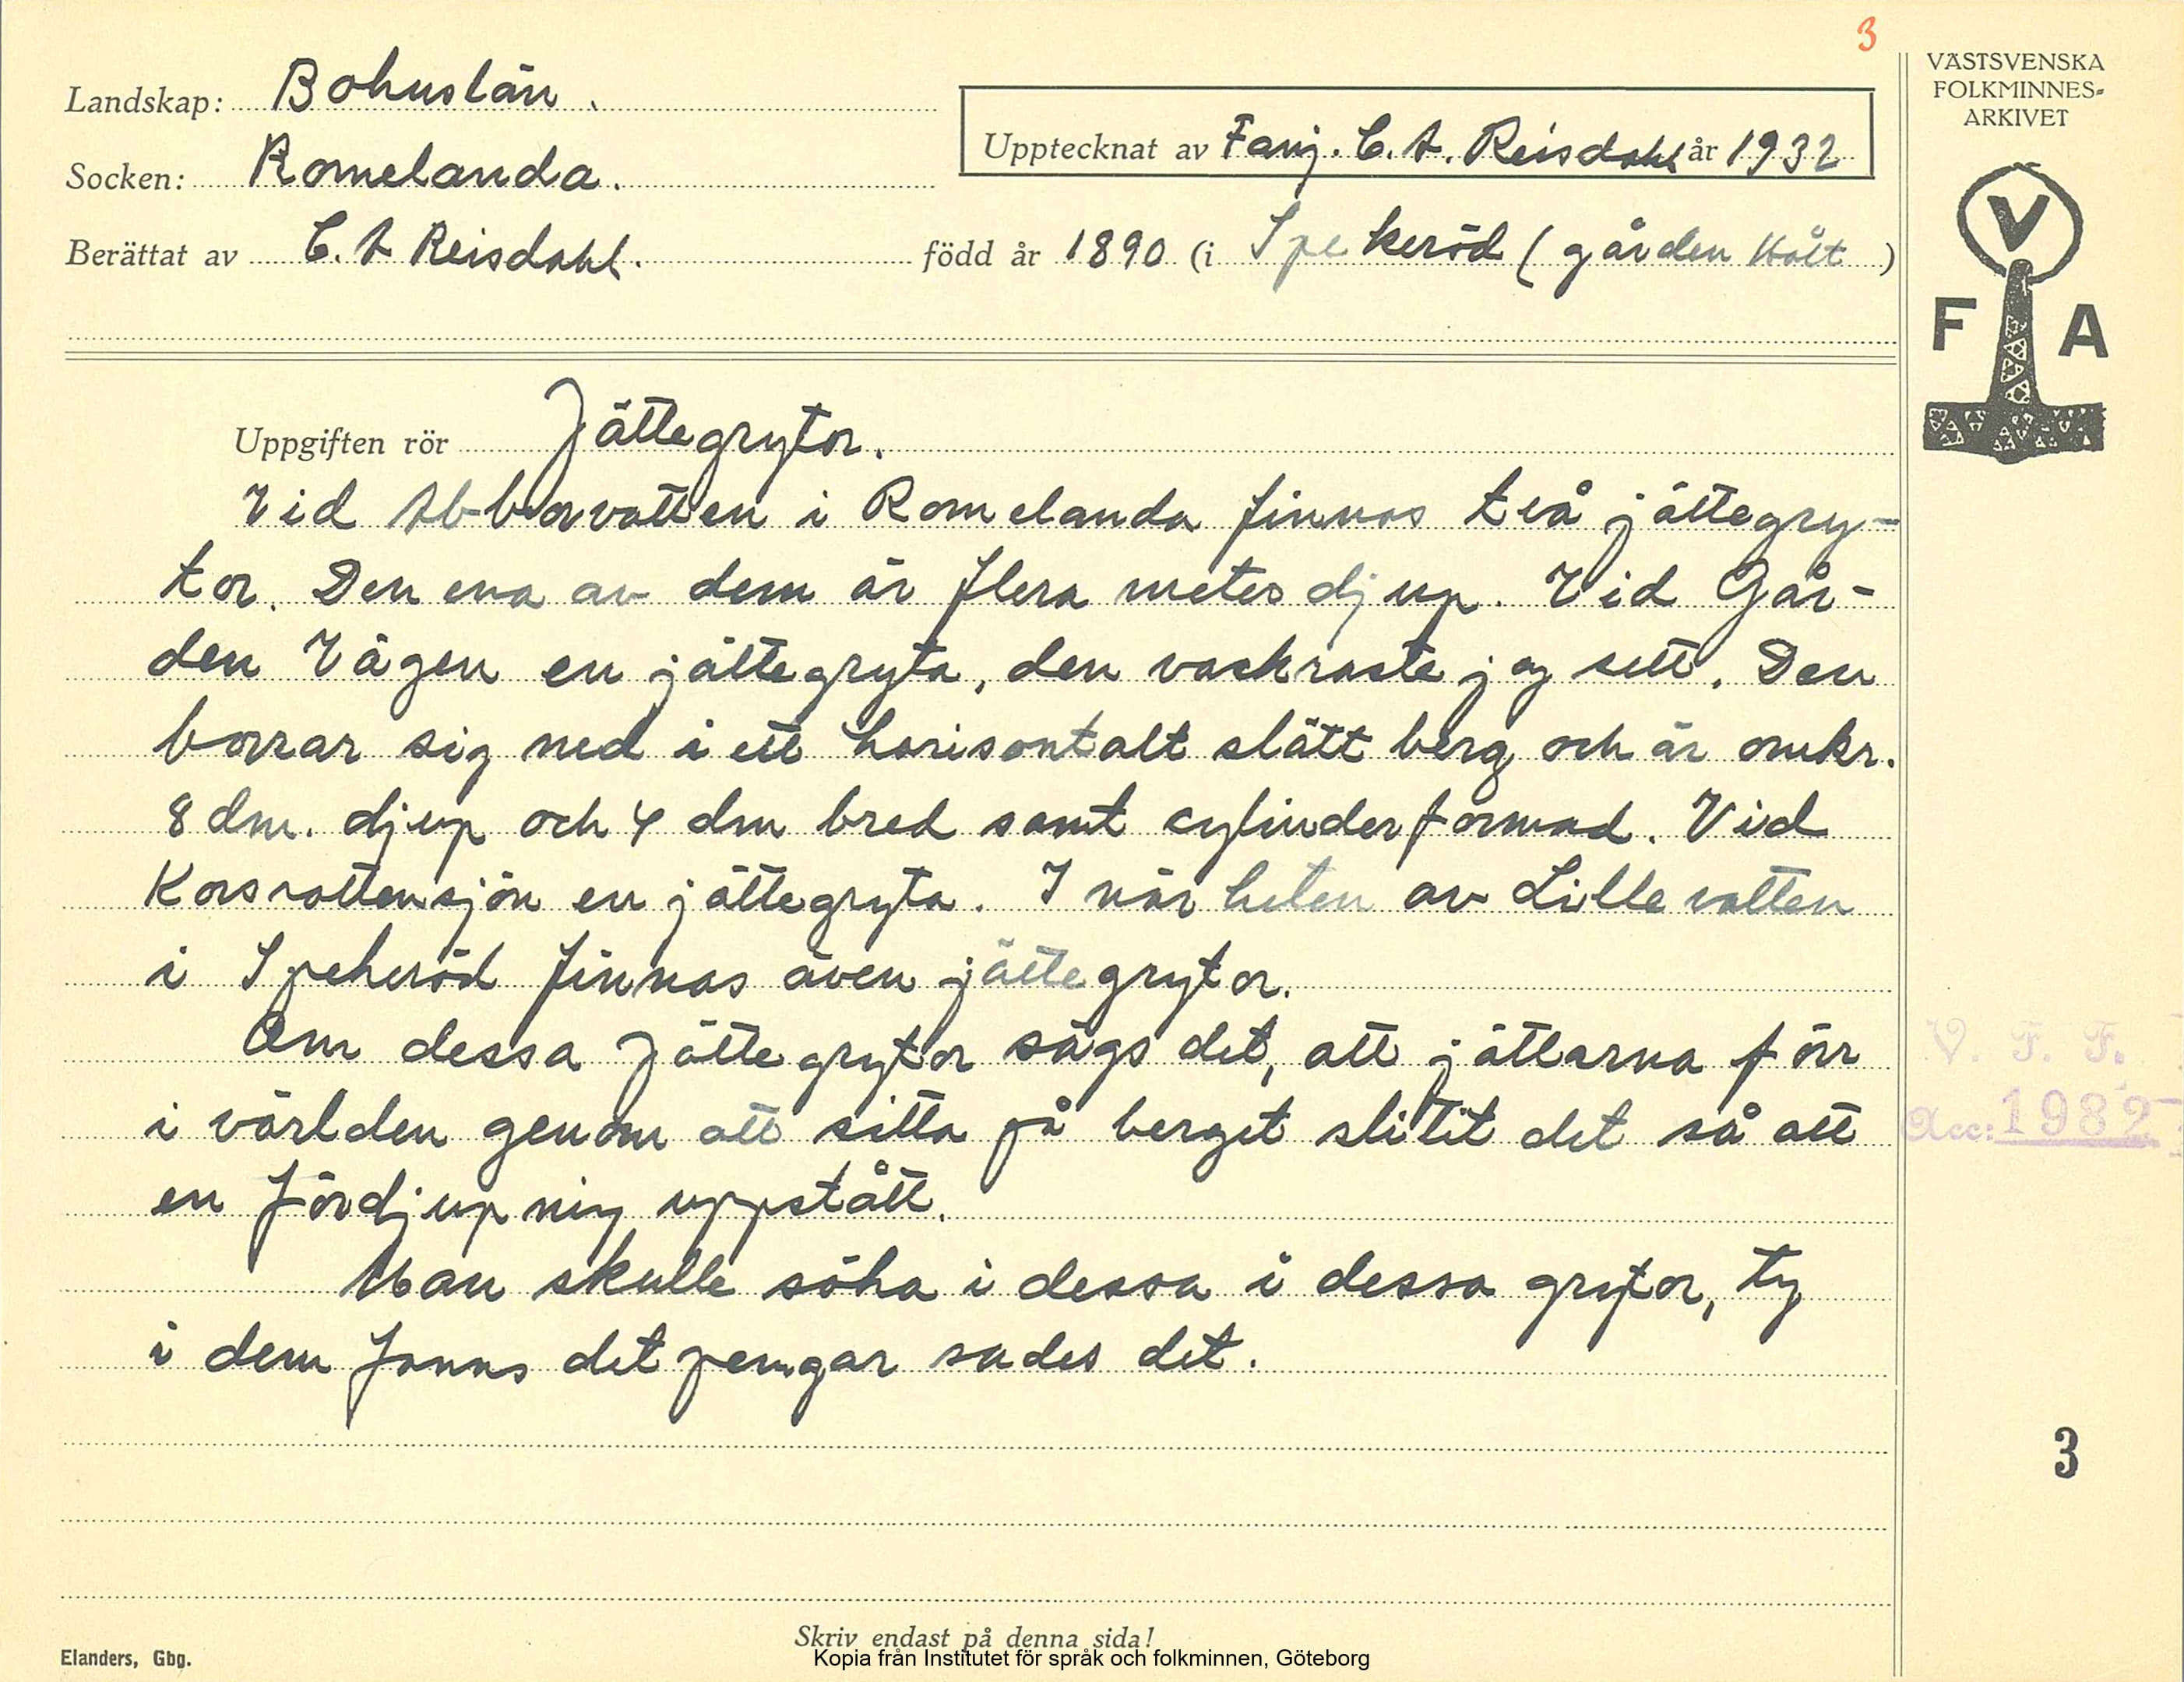 3
Landskap: Bohuslän.
Socken: Romelanda.
Upptecknat av Fanj. C. A. Reisdahl år 1932
Berättat av C. A Reisdahl. född år 1890 (i Spekeröd (gården Hålt)
VÄSTSVENSKA
FOLKMINNES-
ARKIVET
V
F A
Uppgiften rör Jättegrytor.
Vid Abborvatten i Romelanda finnas två jättegry-
tor. Den ena av dem är flera meter djup. Vid Går-
den Vägen en jättegryta, den vackraste jag sett. Den
borrar sig ned i ett horisontalt slätt berg och är omkr.
8 dm. djup och 4 dm bred samt cylinderformad. Vid
Korsvattensjön en jättegryta. I närheten av Lille vatten
i Spekeröd finnas även jättegrytor.
Om dessa Jättegrytor sägs det, att jättarna förr
i världen genom att sitta på berget slitit det så att
en fördjupning uppstått.
Man skulle söka i dessa i dessa grytor, ty
i dem fanns det pengar sades det.
V. F. F.
Acc: 1982
3
Skriv endast på denna sida!
Elanders, Gbg.
Kopia från Institutet för språk och folkminnen, Göteborg